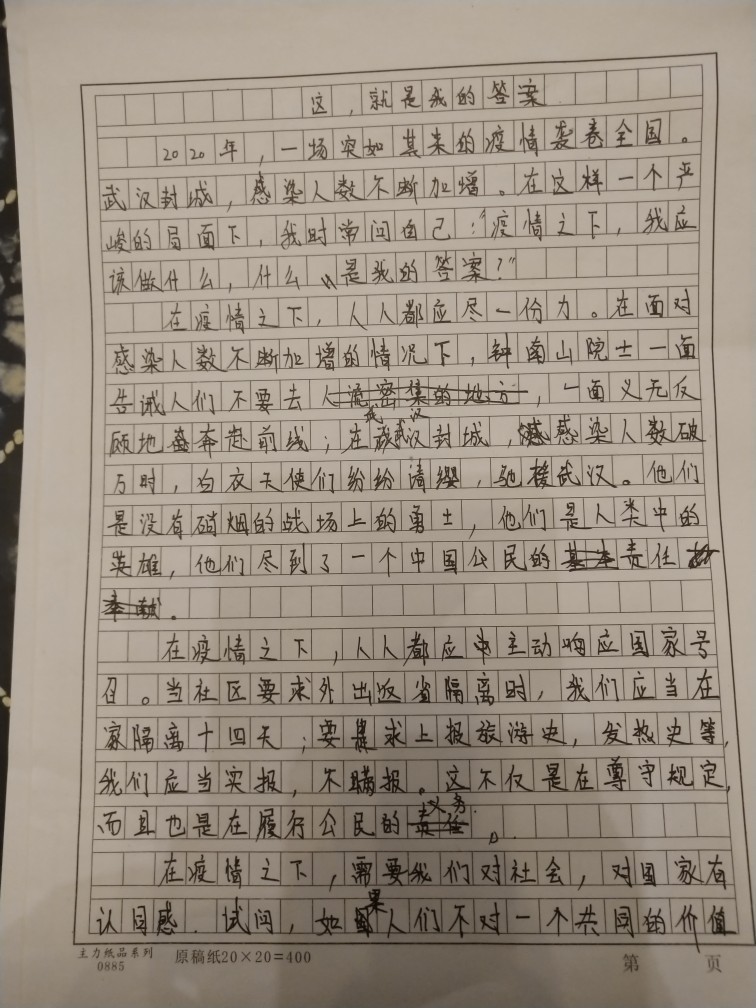 这，就是我的答案
2020年，一场突如其来的疫情袭卷全国。
武汉封城，感染人数不断加增。在这样一个严
峻的局面下，我时常问自己："疫情之下，我应
该做什么，什么是我的答案？"
在疫情之下，人人都应尽一份力。在面对
感染人数不断加增的情况下，钟南山院士一面
告诫人们不要去人流密集的地方，一面义无反
顾地奔赴前线；在武汉封城，感染人数破
万时，白衣天使们纷纷请缨，驰援武汉。他们
是没有硝烟的战场上的勇士，他们是人类中的
英雄，他们尽到了一个中国公民的基本责任
奉献。
在疫情之下，人人都应主动响应国家号
召。当社区要求外出返省隔离时，我们应当在
家隔离十四天；要求上报旅游史，发热史等，
我们应当实报，不瞒报。这不仅是在尊守规定，
而且也是在履行公民的义务。
在疫情之下，需要我们对社会，对国家有
认同感．试问，如果人们不对一个共同的价值
主力纸品系列
0885
原稿纸20×20=400
第 页